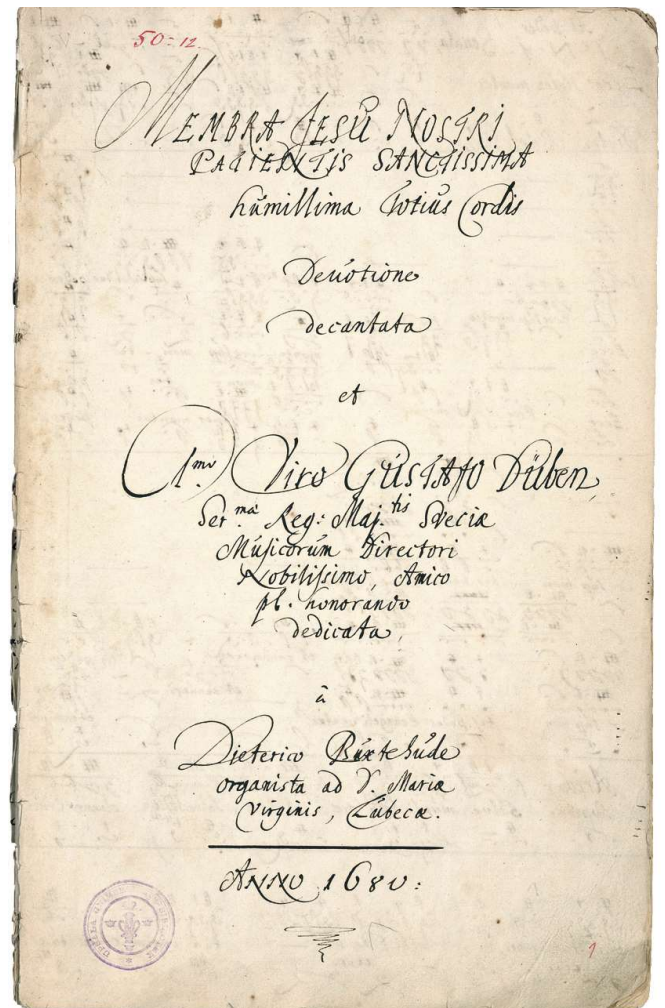 50:12.
MEMBRA JESU NOSTRI
PATIENTIS SANCTISSIMA
humillima Totius Cordis
Devotione
decantata
et
Clmo. Viro GUSTAVO Düben,
Ser.mæ Reg: Maj.tis Sveciæ
Musicorum Directori
Nobilissimo, Amico
pl. honorando
dedicata,
à
Dieterico Buxtehude
organista ad S. Mariæ
virginis, Lübecæ.
ANNO 1680:
1